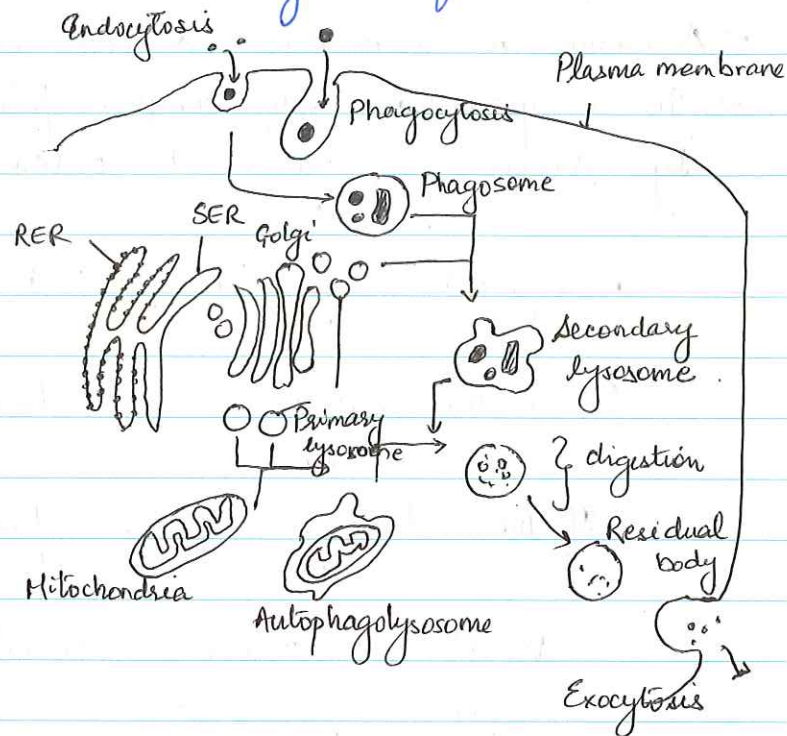 Endocytosis
Plasma membrane
Phagocytosis
Phagosome
SER
RER
Golgi
Secondary
lysosome.
Primary
lysosome
digestion
Residual
body
Mitochondria
Autophagolysosome
Exocytosis